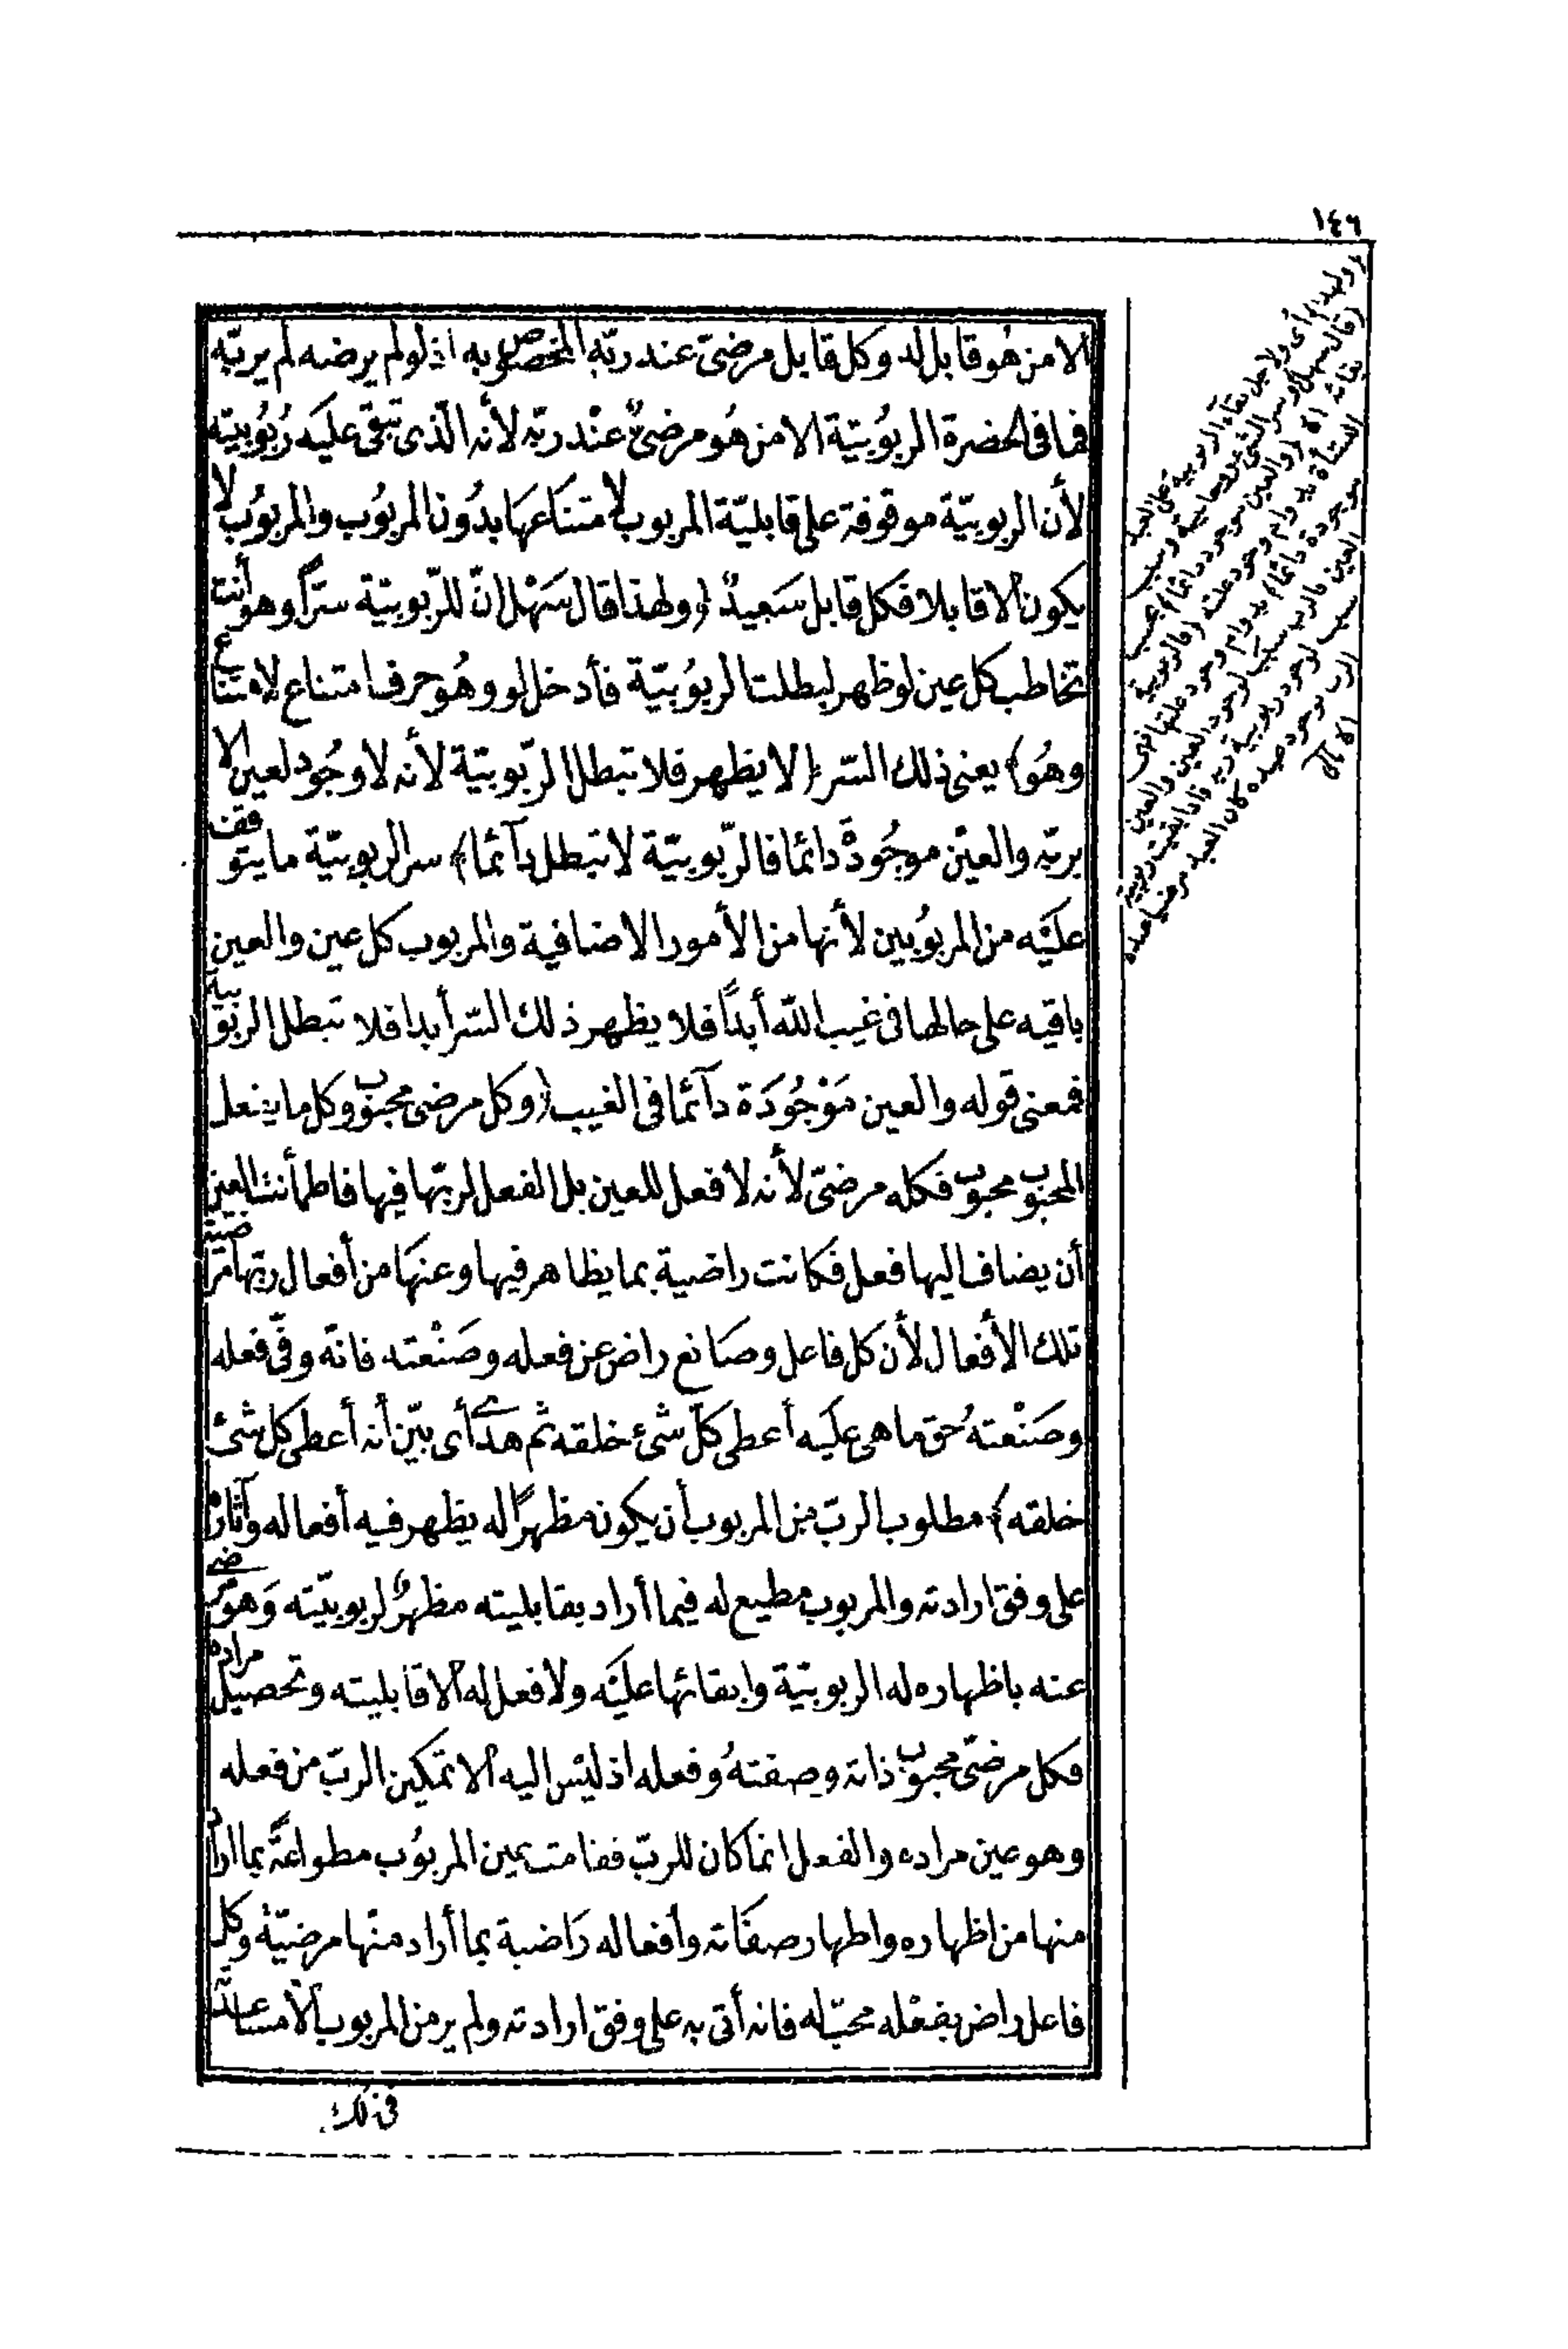 ١٤٦
الا من هُو قابل له وكل قابل مرضىّ عند ربّه المخصوص به اذ لو لم يرضه لم يربّه
فما فى الحضرة الربوُبيّة الا من هُو مرضىٌّ عنْد ربّه لأنه الّذى تبقى عليَه رُبُوبيّته
لأن الربوبيّة موقوفة على قابليّة المربوب لامتناعهَا بدُون المربُوب والمربوُب لا
يكون الا قابلا فكل قابل سَعيدٌ (ولهذا قال سَهْل انّ للرّبوبيّة سرّاً وهو أنت
تخاطب كل عين لو ظهر لبطلت الربوُبيّة فأدخل لو وهُو حرف امتناع لامتناع
وهُو) يعنى ذلك السّر (لا يظهر فلا تبطل الرّبوبيّة لأنه لا وجُود لعين الا
بربّه والعيْن موجُودةٌ دائما فالرّبوبيّة لا تبطل دآئما) سر الربوبيّة ما يتوقف
عليَه من المربوُبين لأنها من الأمور الاضافية والمربوب كل عين والعين
باقيه على حالها فى غيب اللّه أبداً فلا يظهر ذلك السّر أبدا فلا تبطل الربوبية
فمعنى قوله والعين مَوْجُودَة دآئما فى الغيب (وكل مرضى محبوب وكل ما يفعل
المحبوب محبوب فكله مرضىّ لأنه لا فعل للعين بل الفعل لربّها فيها فاطمأنت العين
أن يضاف اليها فعل فكانت راضية بما يظاهر فيها وعنهَا من أفعال ربّها مرضيّة
تلك الأفعال لأن كل فاعل وصَانع راض عن فعله وصَنْعته فانّه وفّى فعله
وصَنْعتهُ حق ما هى عليَه أعطى كلّ شىء خلقه ثم هدى أى بيّن أنه أعطى كل شىء
خلقه) مطلوب الربّ من المربوب أن يكون مظهراً له يظهر فيه أفعاله وآثاره
على وفق ارادته والمربوب مطيع له فيما أراد بقابليته مظهرٌ لربوبيّته وَهو مرضى
عنه باظهاره له الربوبيّة وابقائها عليَه ولا فعل له الا قابليته وتحصيل مراده
فكل مرضىّ محبوب ذاته وصفتهُ وفعله اذ ليْس اليه الا تمكين الربّ من فعله
وهو عين مراده والفعل انما كان للربّ فقامت عين المربوُب مطواعةً بما اراد
منها من اظهاره واظهار صفَاته وأفعاله رَاضية بما أراد منها مرضيّة وكل
فاعل راض بفعْله محبّ له فانه أتى به على وفق ارادته ولم ير من المربوب الا مساعدة
فى ذلك
(ولهذا) أى ولاجل بقاء الربوبية على العبد
(قال سهل) وسر الشئ روحانيته وسبب
بقائه اه
(والعين موجود دائما) بحسب
النشأة بدوام وجود علته (فالربوبية
موجودة دائما) بدوام وجود علتها فهى
العين فالرب سبب لوجود العين والعين
سبب لوجود ربوبية ربه واذا بقيت ربوبية
الرب بوجود عبده كان العبد مرضيا عنده
اه بالى